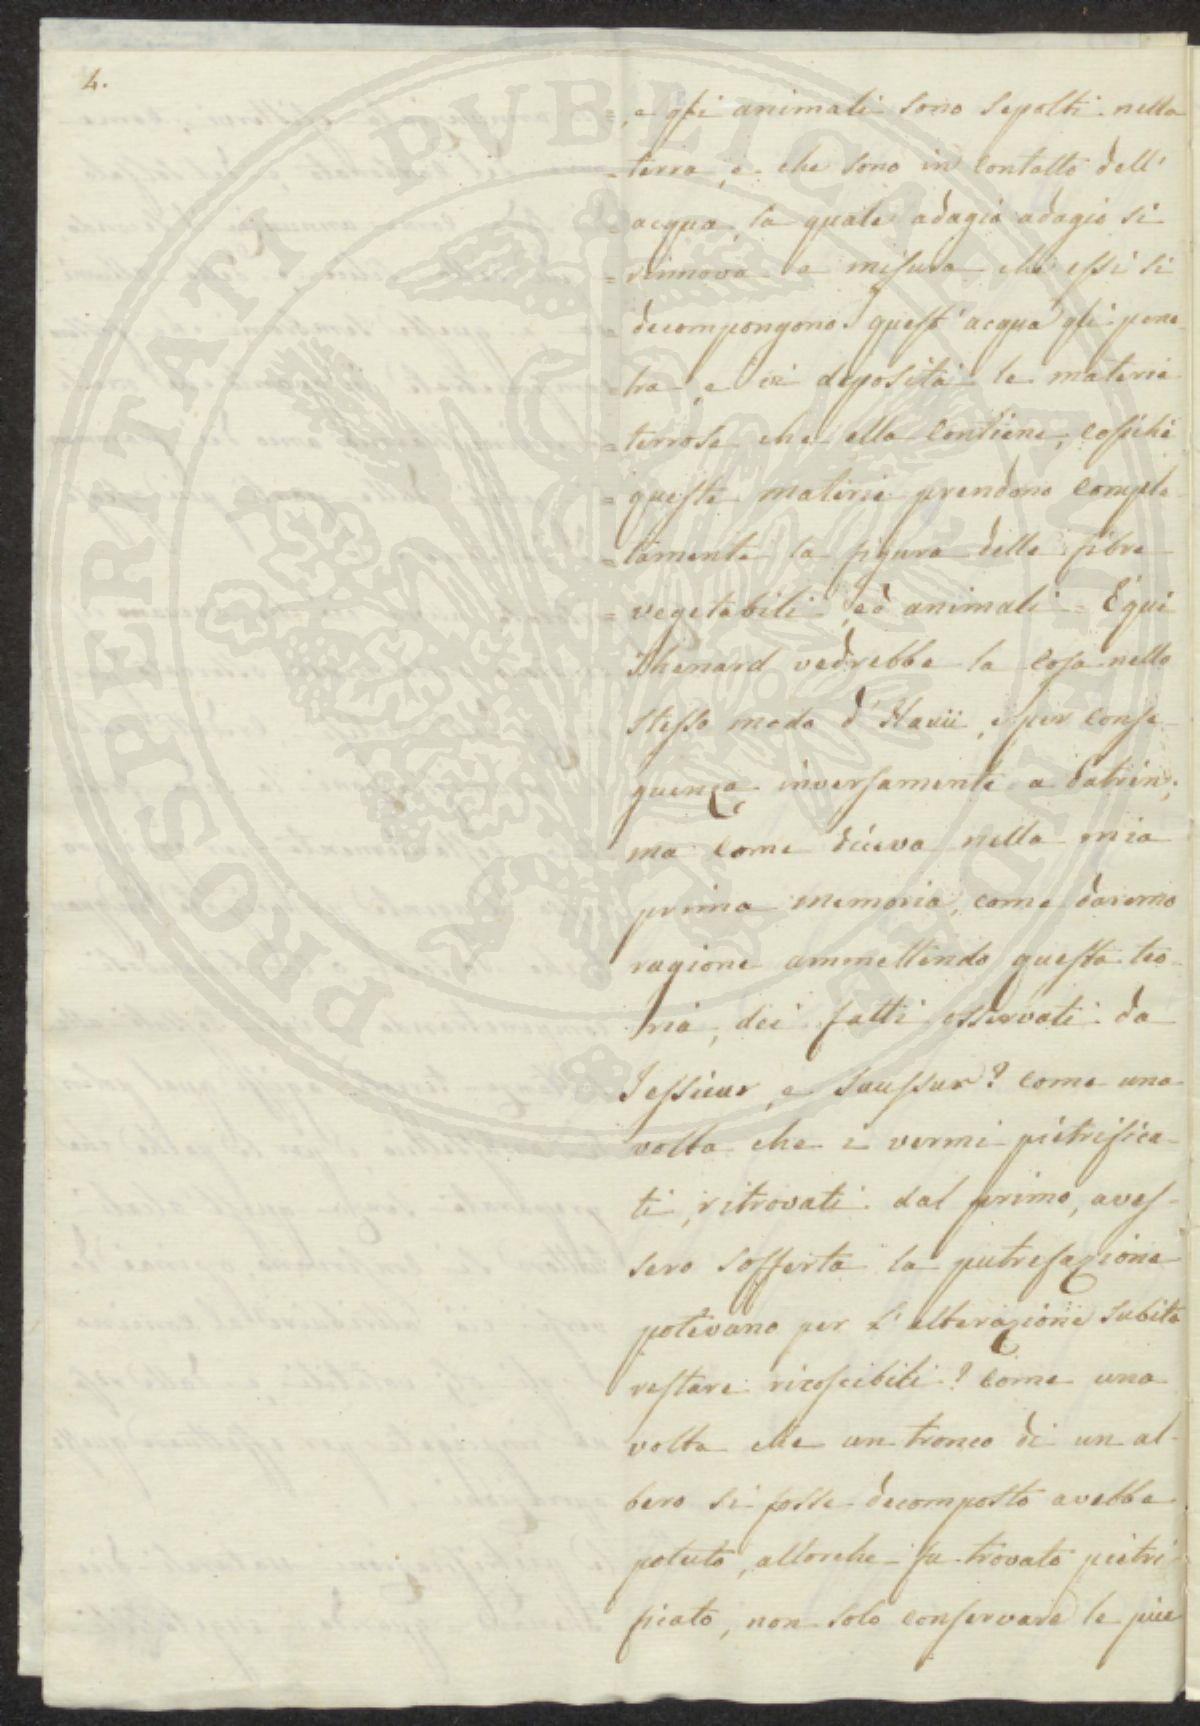 4.
=, e gli animali sono sepolti nella
= terra, e che sono in contatto dell'
= acqua, la quale adagio adagio si
= rinnova a misura che essi si
= decompongono quest'acqua gli pene-
= tra, e vi deposita le materie
= terrose che ella contiene, cosichè
= queste materie prendono comple
= tamente la figura delle fibre
= vegetabili, ed animali = E qui
Thenard vedrebbe la cosa nello
stesso modo d'Haüii, e per conse
guenza inversamente a Patrin;
ma come diceva nella mia
prima memoria, come daremo
ragione ammettendo questa teo-
ria, dei fatti osservati da
Jessieur, e Saussur? come una
volta che i vermi pietrifica-
ti, ritrovati dal primo, aves-
sero sofferta la putrefazione
potevano per l'alterazione subita
restare ricoscibili? come una
volta che un tronco di un al-
bero si fosse decomposto avebbe
potuto, allorche fu trovato pietri
ficato, non solo conservare le piu
PROSPERITATI PUBLICAE AUGENDAE